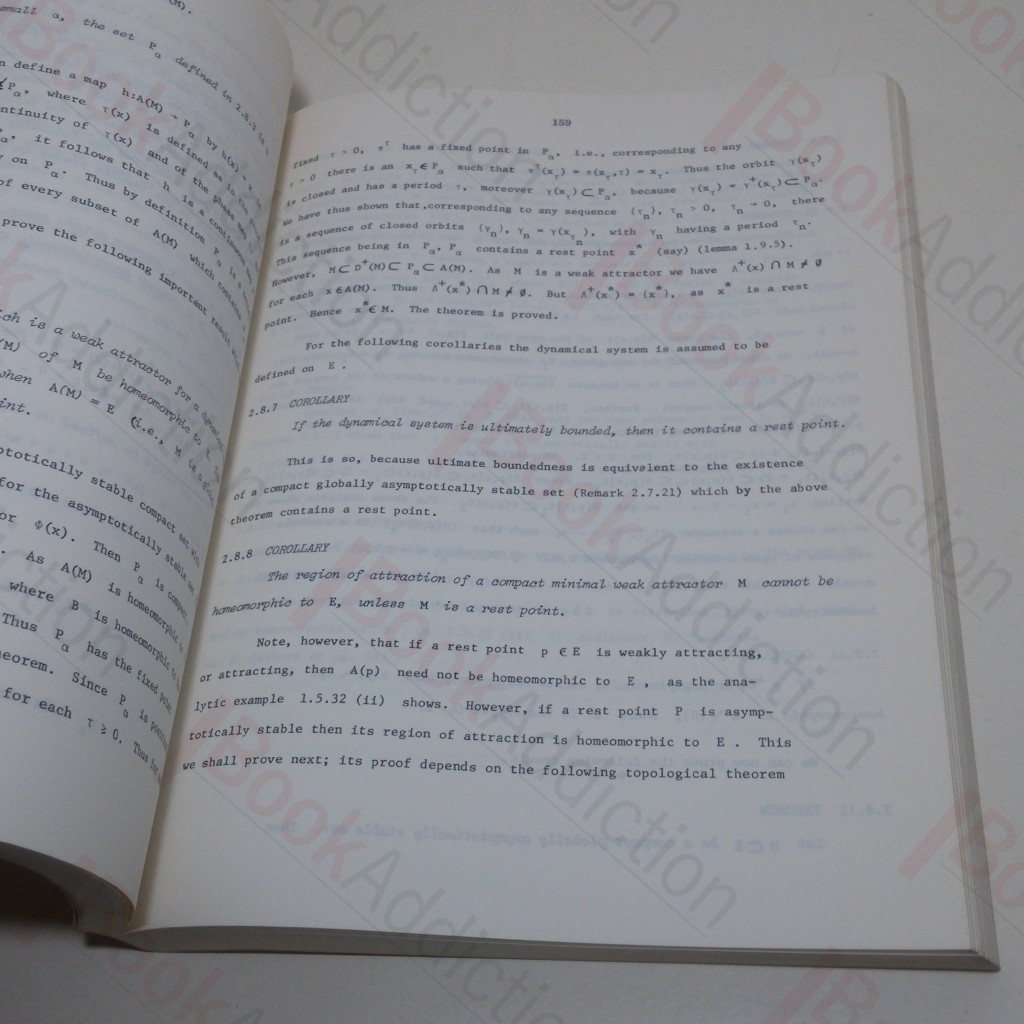 small α, the set Pα defined in 2.8.3 is a
define a map h:A(M) → Pα by h(x) =
Pα, where τ(x) is defined as in the
continuity of τ(x) and of the phase
it follows that h is a continuous
on Pα. Thus by definition Pα is a
of every subset of A(M) which contains
prove the following important result
which is a weak attractor for a dynamical
(M) of M be homeomorphic to E.
when A(M) = E (i.e., M is a
point.
asymptotically stable compact set
for the asymptotically stable set
or Φ(x). Then Pα is compact,
. As A(M) is homeomorphic to
where B is homeomorphic to
Thus Pα has the fixed point
theorem. Since Pα is
for each τ ≥ 0. Thus for
159
fixed τ > 0, πᵗ has a fixed point in Pα, i.e., corresponding to any
τ > 0 there is an xτ ∈ Pα such that πᵗ(xτ) = π(xτ,τ) = xτ. Thus the orbit γ(xτ)
is closed and has a period τ, moreover γ(xτ) ⊂ Pα, because γ(xτ) = γ⁺(xτ) ⊂ Pα.
We have thus shown that,corresponding to any sequence {τn}, τn > 0, τn → 0, there
is a sequence of closed orbits {γn}, γn = γ(xτn), with γn having a period τn.
This sequence being in Pα, Pα contains a rest point x* (say) (lemma 1.9.5).
However, M ⊂ D⁺(M) ⊂ Pα ⊂ A(M). As M is a weak attractor we have Λ⁺(x) ∩ M ≠ ∅
for each x ∈ A(M). Thus Λ⁺(x*) ∩ M ≠ ∅. But Λ⁺(x*) = {x*}, as x* is a rest
point. Hence x* ∈ M. The theorem is proved.
For the following corollaries the dynamical system is assumed to be
defined on E .
2.8.7 COROLLARY
If the dynamical system is ultimately bounded, then it contains a rest point.
This is so, because ultimate boundedness is equivalent to the existence
of a compact globally asymptotically stable set (Remark 2.7.21) which by the above
theorem contains a rest point.
2.8.8 COROLLARY
The region of attraction of a compact minimal weak attractor M cannot be
homeomorphic to E, unless M is a rest point.
Note, however, that if a rest point p ∈ E is weakly attracting,
or attracting, then A(p) need not be homeomorphic to E , as the ana-
lytic example 1.5.32 (ii) shows. However, if a rest point P is asymp-
totically stable then its region of attraction is homeomorphic to E . This
we shall prove next; its proof depends on the following topological theorem
BookAddiction